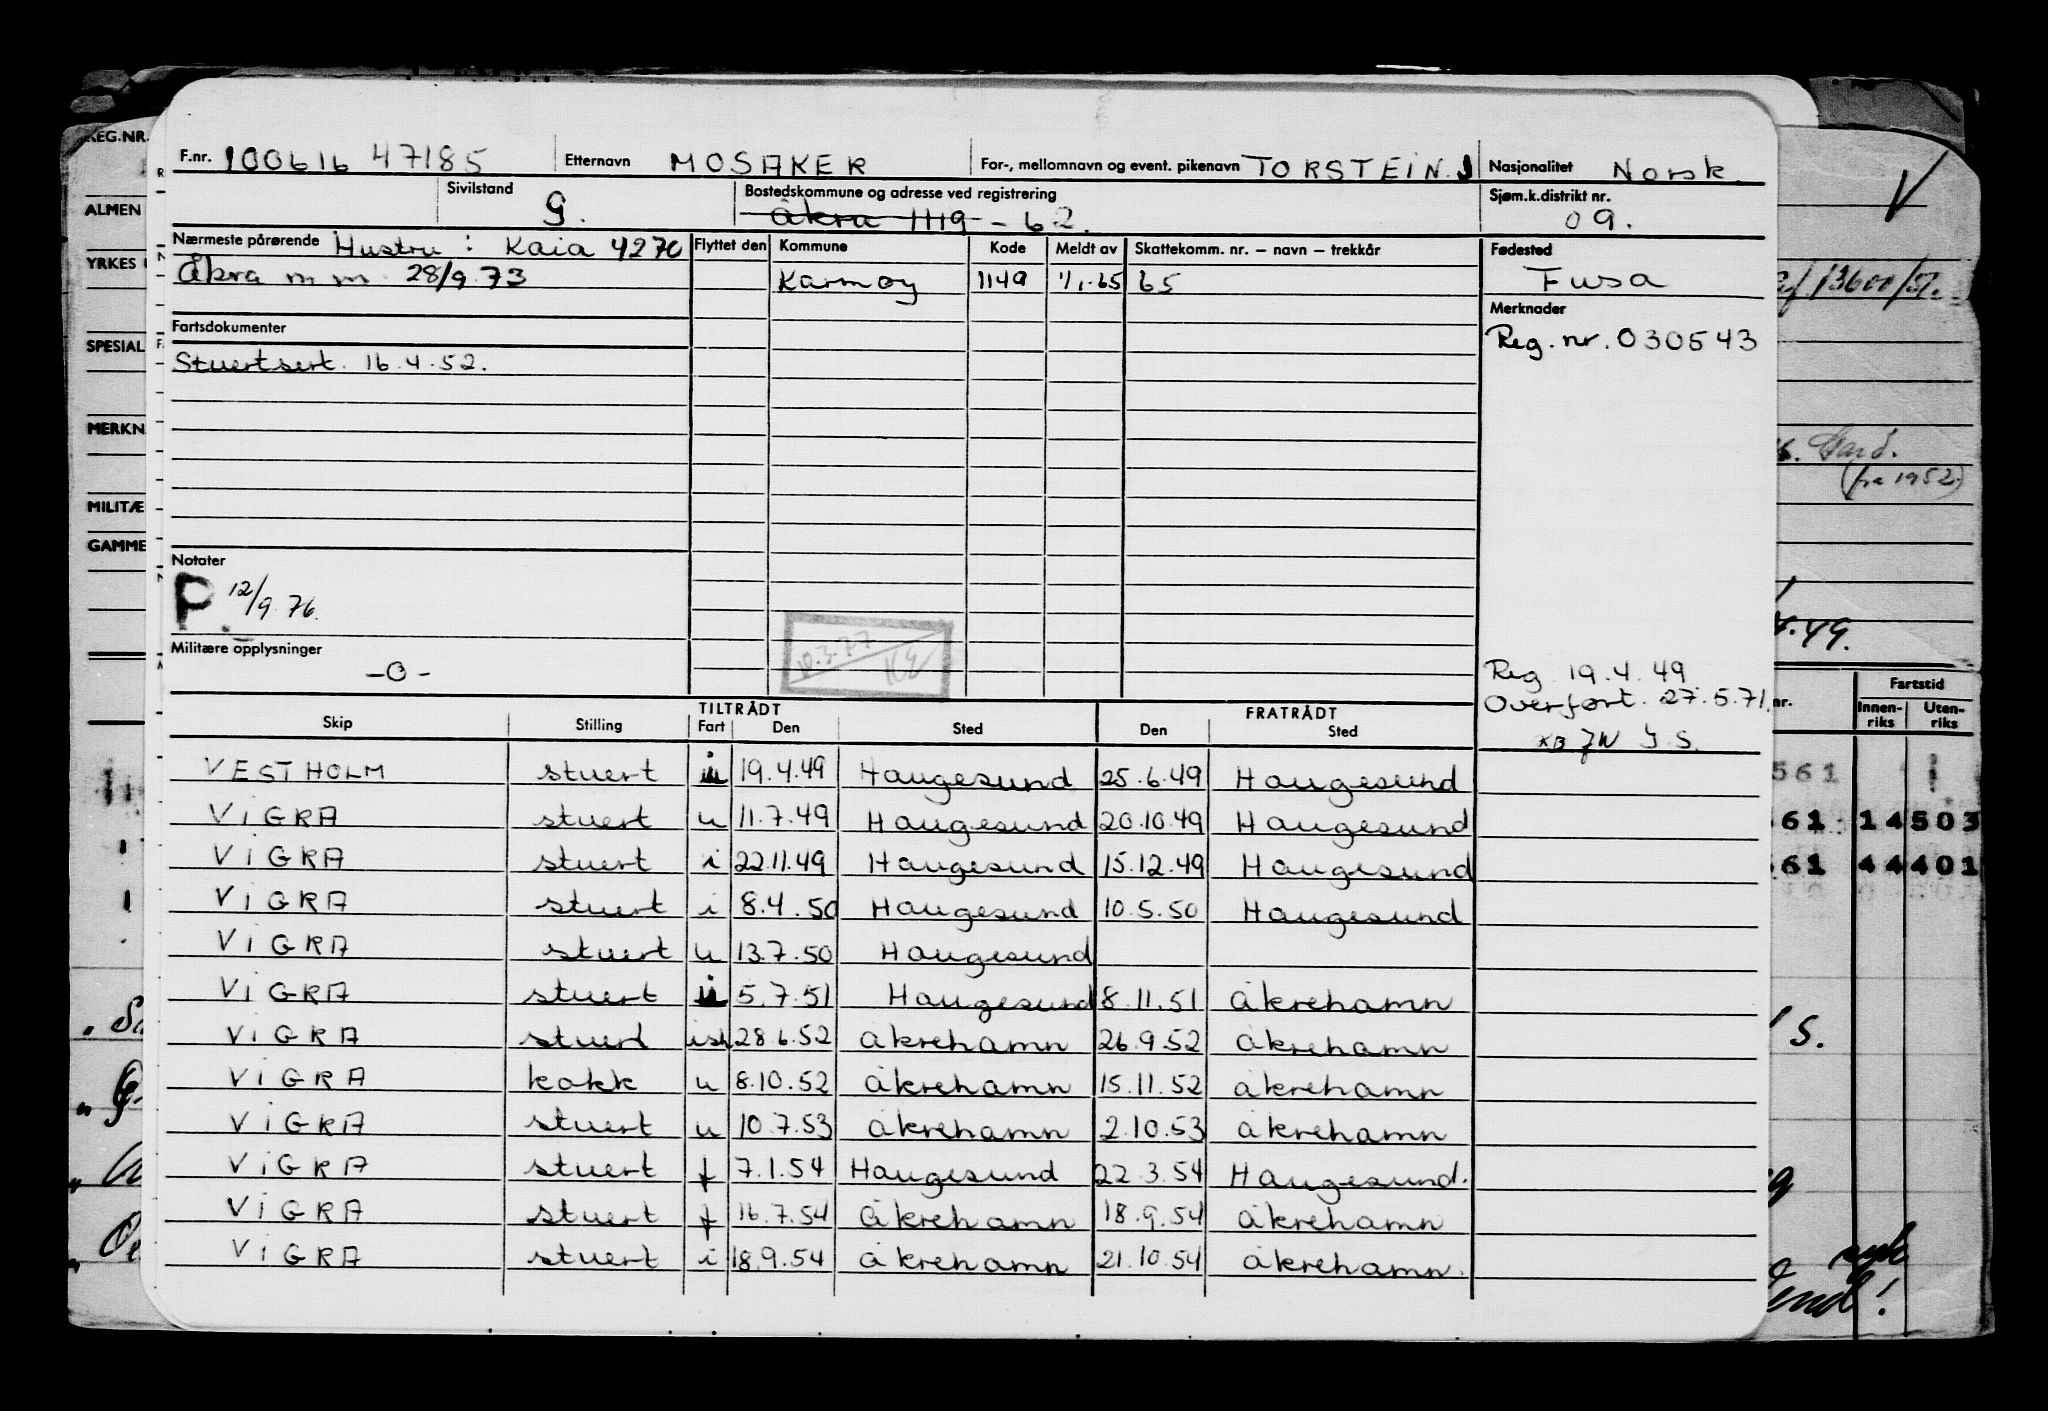 F.nr. 100616 47185 Etternavn MOSAKER For-, mellomnavn og event. pikenavn TORSTEIN. J Nasjonalitet Norsk.
Sivilstand G. Bostedskommune og adresse ved registrering Åkra 1119 - 62. Sjøm.k.distrikt nr. 09.
Nærmeste pårørende Hustru : Kaia 4270 Flyttet den Kommune Kode Meldt av Skattekomm. nr. – navn – trekkår Fødested
Åkra m m. 28/9.73 Karmøy 1149 1/1.65 65 Fusa
Fartsdokumenter Merknader
Stuertsert. 16.4.52. Reg. nr. 030543
Notater
P. 12/9.76.
10.3.77
Militære opplysninger
-0-
Reg 19.4.49
Overført. 27.5.71.
TILTRÅDT FRATRÅDT
Skip Stilling Fart Den Sted Den Sted
VESTHOLM stuert i 19.4.49 Haugesund 25.6.49 Haugesund
VIGRA stuert u 11.7.49 Haugesund 20.10.49 Haugesund
VIGRA stuert i 22.11.49 Haugesund 15.12.49 Haugesund
VIGRA stuert i 8.4.50 Haugesund 10.5.50 Haugesund
VIGRA stuert u 13.7.50 Haugesund
VIGRA stuert i 5.7.51 Haugesund 8.11.51 Åkrehamn
VIGRA stuert ish 28.6.52 Åkrehamn 26.9.52 Åkrehamn
VIGRA kokk u 8.10.52 Åkrehamn 15.11.52 Åkrehamn
VIGRA stuert u 10.7.53 Åkrehamn 2.10.53 Åkrehamn
VIGRA stuert f 7.1.54 Haugesund 22.3.54 Haugesund.
VIGRA stuert f 16.7.54 Åkrehamn 18.9.54 Åkrehamn
VIGRA stuert i 18.9.54 Åkrehamn 21.10.54 Åkrehamn.
REG.NR.
ALMEN
YRKES
SPESIAL
MERKN
MILITÆ
GAMME
V
13600/51.
(fra 1952)
4.49.
nr. Fartstid
Innenriks Utenriks
561
561 14 503
561 44 401